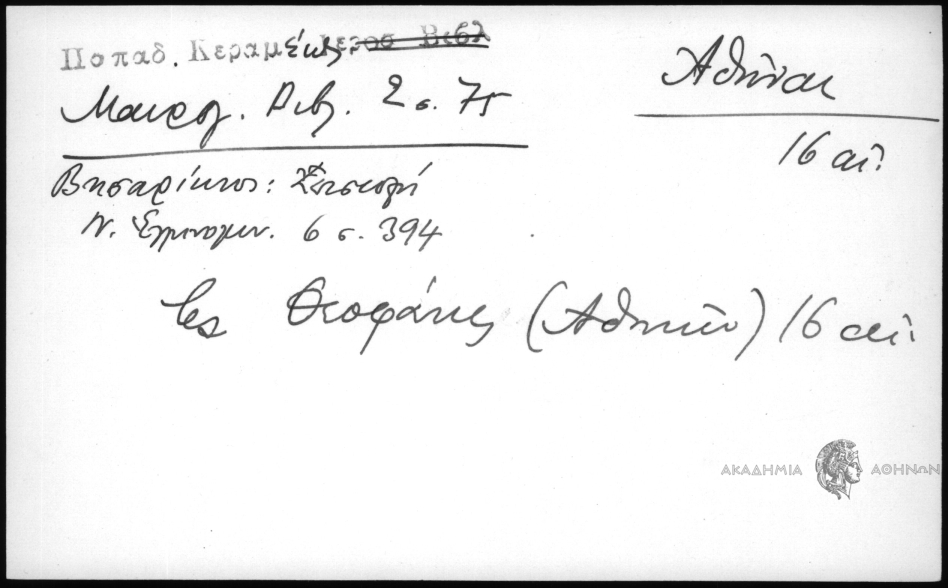 Παπαδ. Κεραμέως Ιεροσ Βιβλ
Μαυρογ. Βιβλ. 2 σ. 75
Αθῆναι
16 αἰ.
Βησαρίωνος: Ἐπιστολή
Ν. Ἑλληνομν. 6 σ. 394
Θεοφάνης (Ἀθηνῶν) 16 αἰ.
ΑΚΑΔΗΜΙΑ ΑΘΗΝΩΝ